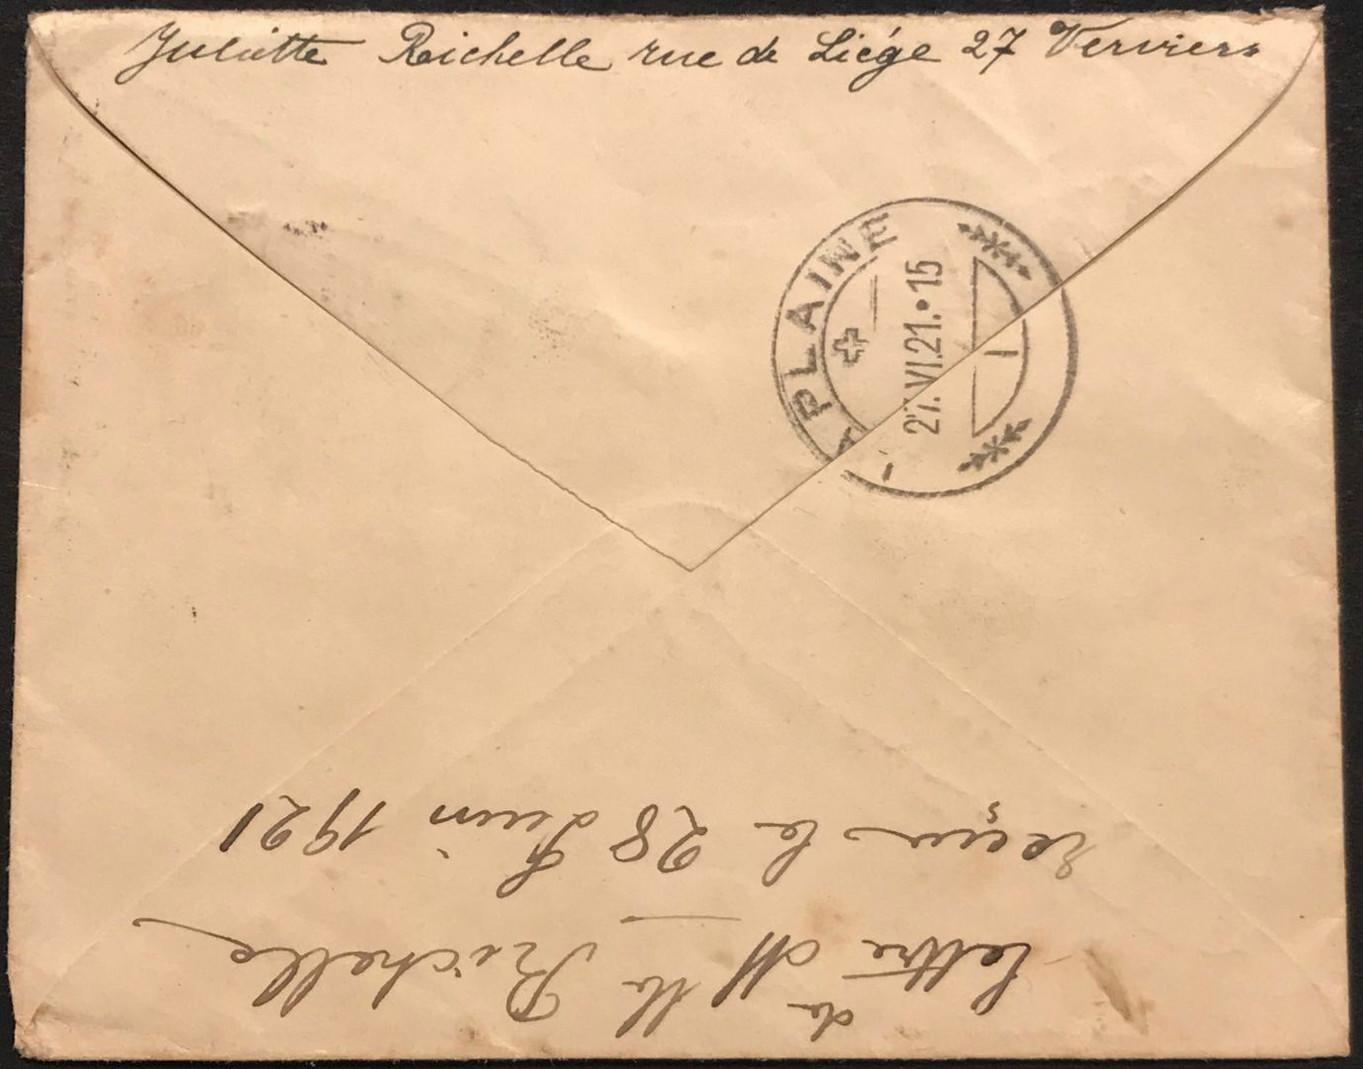 Juliette Richelle rue de Liége 27 Verviers
LA PLAINE
27.VI.21.•15
lettre de Mlle Richelle
reçue le 28 Juin 1921